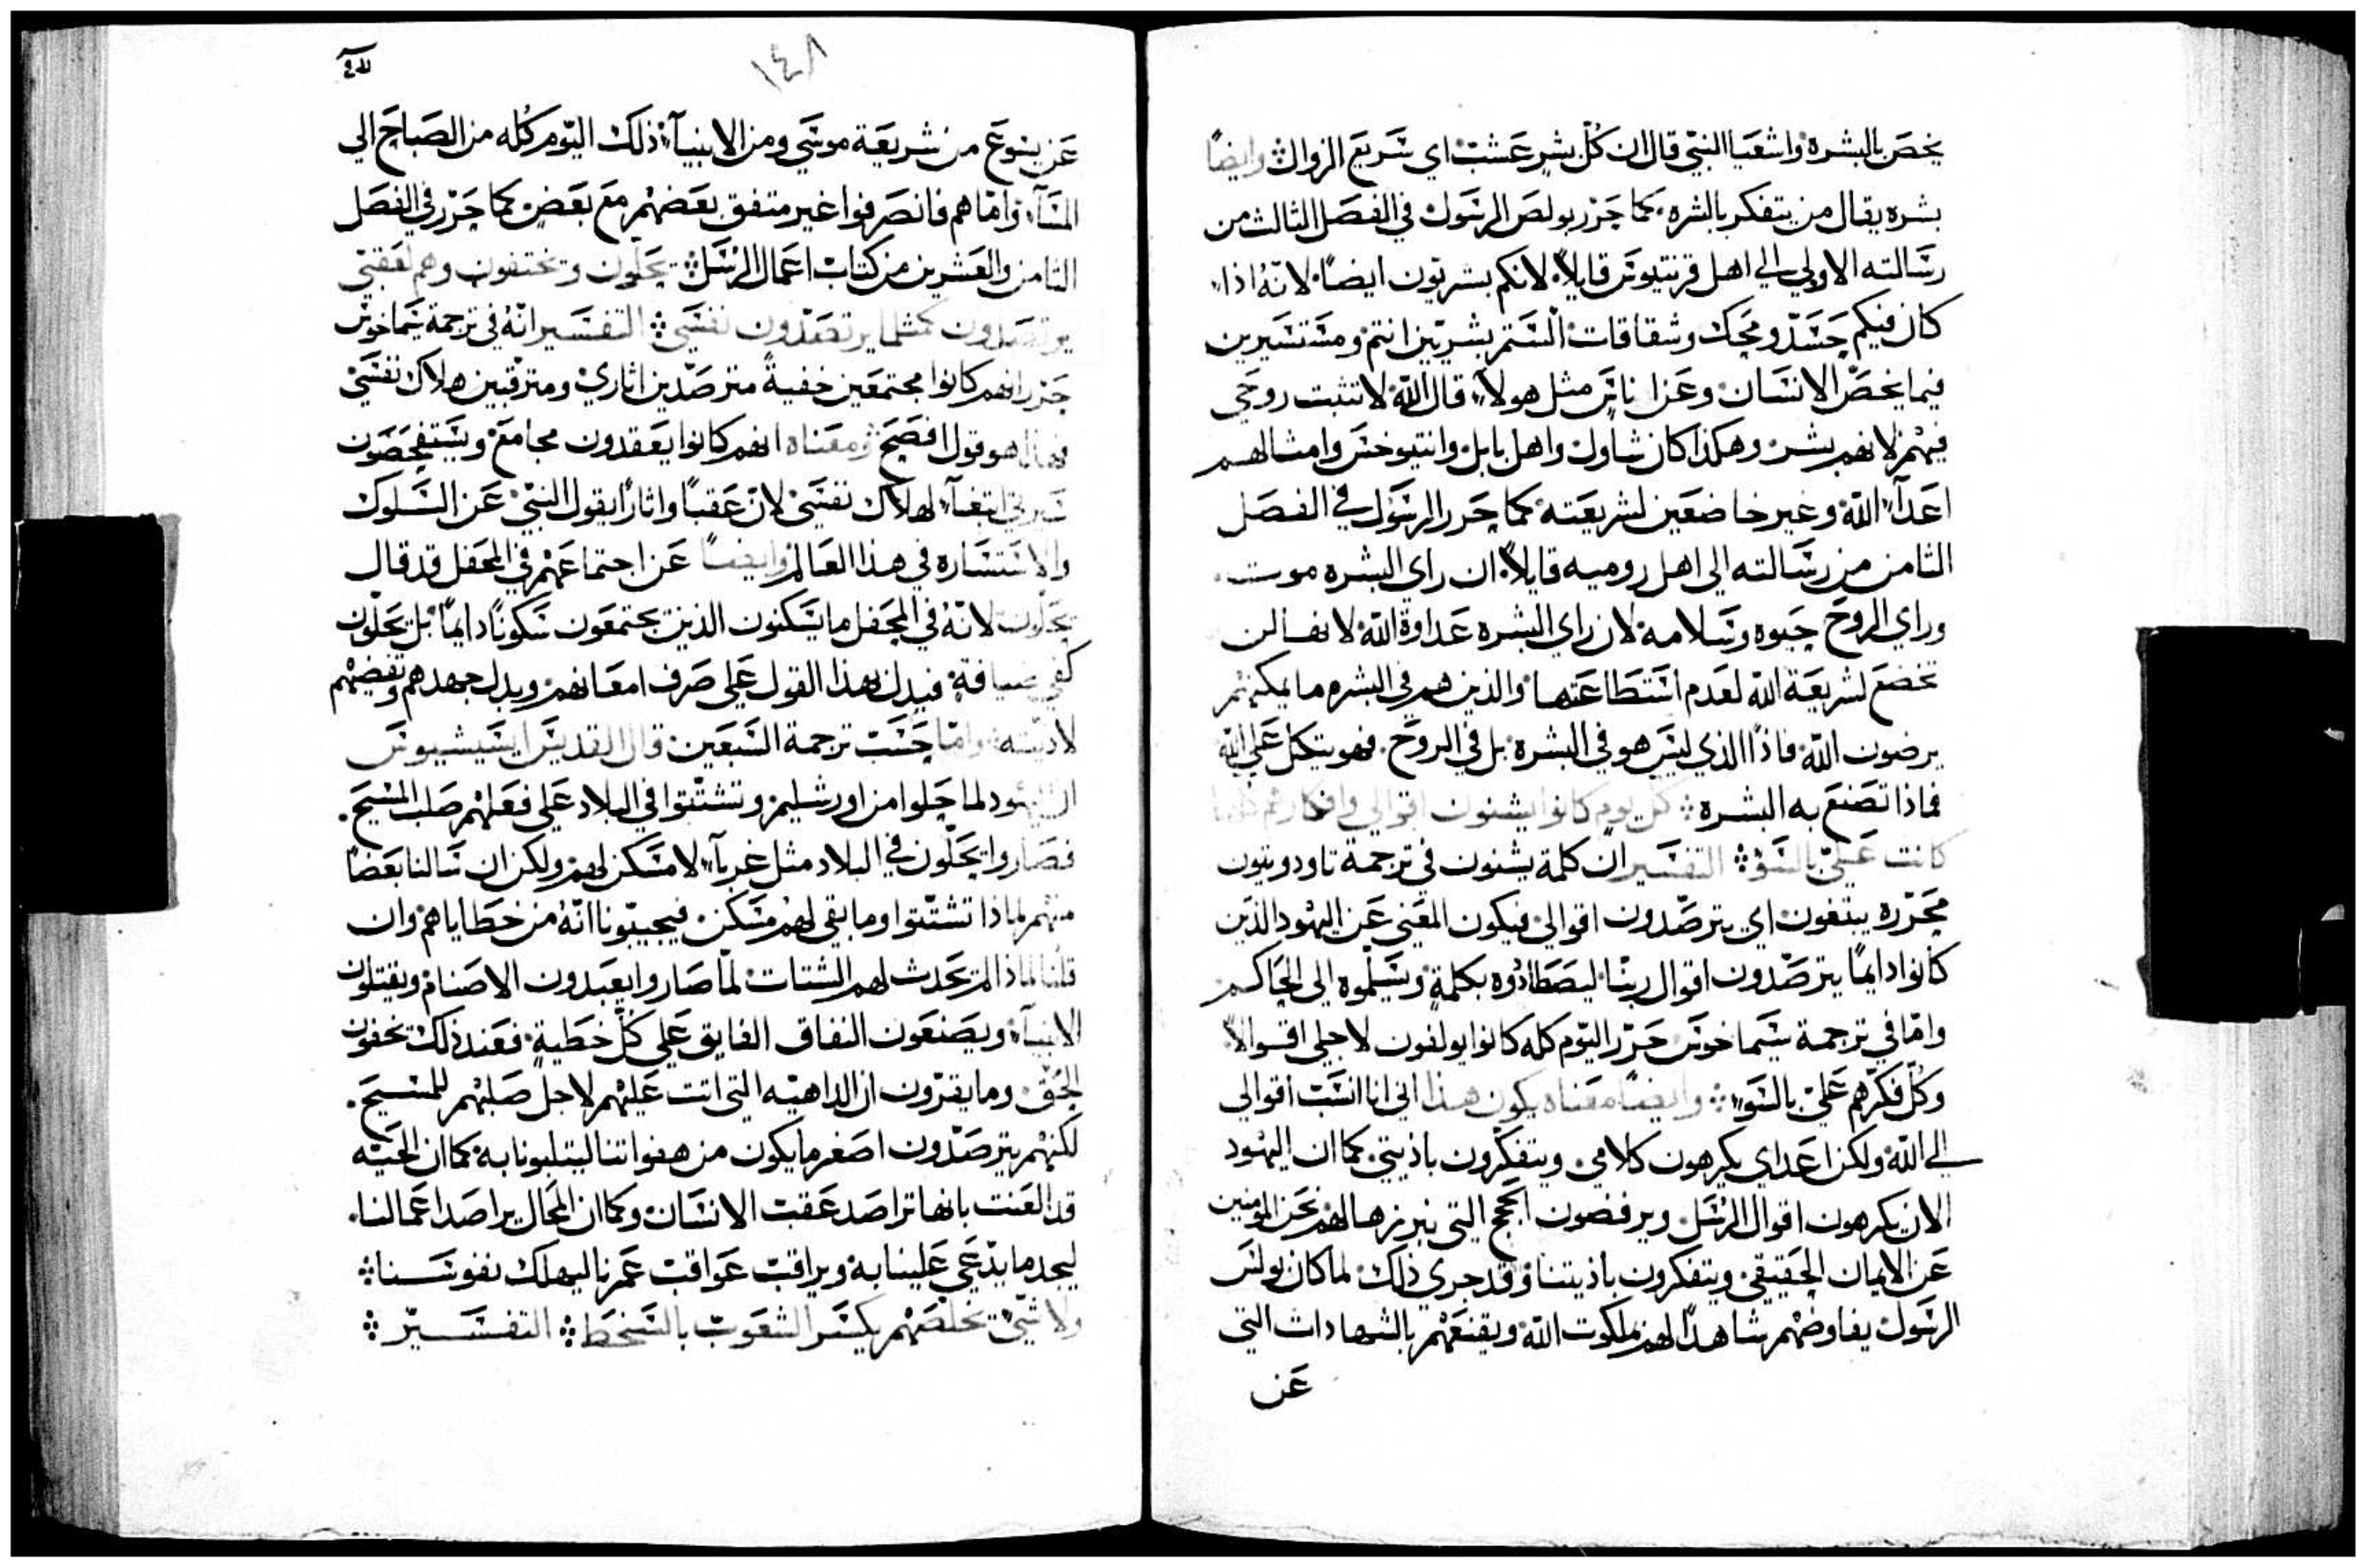 يخص بالبشرة واشعيا النبي قال ان كل بشر عشب اي سريع الزوال وايضاً
بشره يقال من يتفكر بالشره كما حرر بولص الرسول في الفصل الثالث من
رسالته الاولي الي اهل قرنتيوس قايلاً لانكم بشريون ايضاً لانه اذا
كان فيكم حسد ومحك وشقاقات الستم بشريين انتم ومستسيرين
فيما يخص الانسان وعن اناس مثل هولاء قال الله لا تثبت روحي
فيهم لانهم بشر وهكذا كان شاول واهل بابل وانتيوخس وامثالهم
اعداء الله وغير خاضعين لشريعته كما حرر الرسول في الفصل
الثامن من رسالته الي اهل روميه قايلاً ان راي البشره موت
وراي الروح حيوه وسلامه لان راي البشره عداوة الله لانها لن
تخضع لشريعة الله لعدم استطاعتها والذين هم في البشره ما يمكنهم
يرضون الله فاذًا الذي ليس هو في البشرة بل في الروح فهو يتكل علي الله
فماذا تصنع به البشره كل يوم كانوا يشنون اقوالي وافكارهم كلها
كانت علي بالسؤ التفسير ان كلمة يشنون في ترجمة تاودوتيون
محرره يبتغون اي يترصدون اقوالي فيكون المعني عن اليهود الذين
كانوا دايماً يترصدون اقوال ربنا ليصطادوه بكلمة ويسلموه الي الحاكم
واما في ترجمة سيماخوس حرر اليوم كله كانوا يولفون لاجلي اقوالاً
وكل فكرهم علي بالسوء وايضاً معناه يكون هذا اني انا انسب اقوالي
الي الله ولكن اعداي يكرهون كلامي ويتفكرون باذيتي كما ان اليهود
الان يكرهون اقوال الرسل ويرفضون الحجج التي نبرزها لهم نحن المومنين
عن الايمان الحقيقي ويتفكرون باذيتنا وقد جري ذلك لما كان بولس
الرسول يفاوضهم شاهداً لهم بملكوت الله ويقنعهم بالشهادات التي
عن
١٤٨
عن يسوع من شريعة موسي ومن الانبياء ذلك اليوم كله من الصباح الي
المساء واما هم فانصرفوا غير متفق بعضهم مع بعض كما حرر في الفصل
الثامن والعشرين من كتاب اعمال الرسل يحلون ويختفون وهم لعقبي
يرتصدون كمثلما يرتصدون نفسي التفسير انه في ترجمة سيماخوس
حرر انهم كانوا مجتمعين خفيةً مترصدين اثاري ومترقبين هلاك نفسي
فهذا هو قول افصح ومعناه انهم كانوا يعقدون مجامع ويستفحصون
سيرتي ابتغاء لهلاك نفسي لان عقباً واثاراً يقول النبي عن السلوك
والاستساره في هذا العالم وايضاً عن اجتماعهم في المحفل قد قال
يحلون لانه في المحفل ما يسكنون الذين يجتمعون سكوناً دايماً بل يحلون
كفي ضيافة فيدل بهذا القول علي صرف امعانهم وبدل جهدهم وتفضيهم
لاديته واما حسب ترجمة السبعين قال القديس ايسيشيوس
ان اليهود لما جلوا من اورشليم وتشتتوا في البلاد علي فعلهم صلب المسيح
فصاروا يحلون في البلاد مثل غرباء لا مسكن لهم ولكن ان سالنا بعضاً
منهم لماذا تشتتوا وما بقي لهم مسكن فيجيبونا انه من خطاياهم وان
قلنا لماذا لم يحدث لهم الشتات لما صاروا يعبدون الاصنام ويقتلون
الانبياء ويصنعون النفاق الفايق علي كل خطية فعند ذلك يخفون
الحق وما يقرون ان الداهيه التي اتت عليهم لاجل صلبهم للمسيح
لكنهم يترصدون اصغر ما يكون من هفواتنا ليتلبونا به كما ان الحيه
قد لعنت بانها تراصد عقب الانسان وكما ان المحال يراصد اعمالنا
ليجد ما يدعي علينا به ويراقب عواقب عمرنا ليهلك نفوسنا
ولا شي تخلصهم يكسر الشعوب بالسخط التفسير